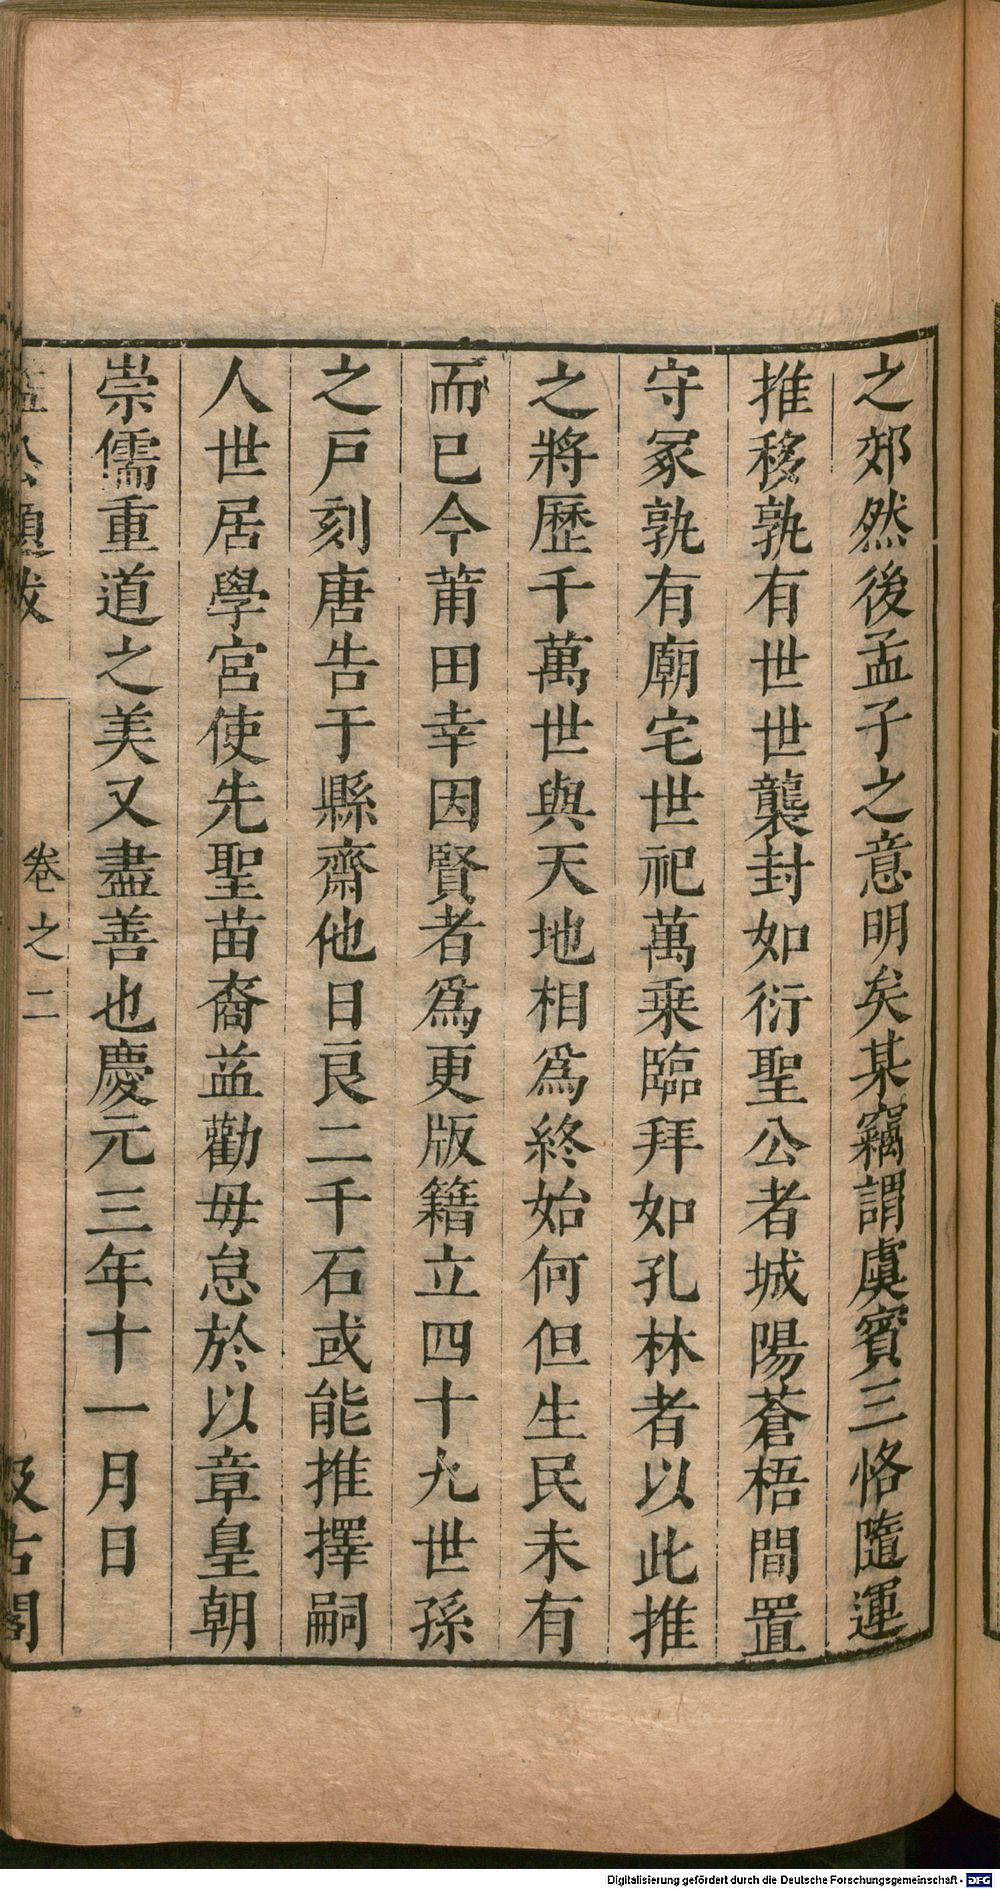 之郊然後孟子之意明矣某竊謂虞賓三恪隨運
推移孰有世世襲封如衍聖公者城陽蒼梧間置
守冢孰有廟宅世祀萬乗臨拜如孔林者以此推
之將歷千萬世與天地相爲終始何但生民未有
而已今莆田幸因賢者爲更版籍立四十九世孫
之戸刻唐告于縣齋他日良二千石或能推擇嗣
人世居學宮使先聖苗裔益勸毋怠於以章皇朝
崇儒重道之美又盡善也慶元三年十一月日
益公題跋 卷之二 汲古閣
Digitalisierung gefördert durch die Deutsche Forschungsgemeinschaft - DFG